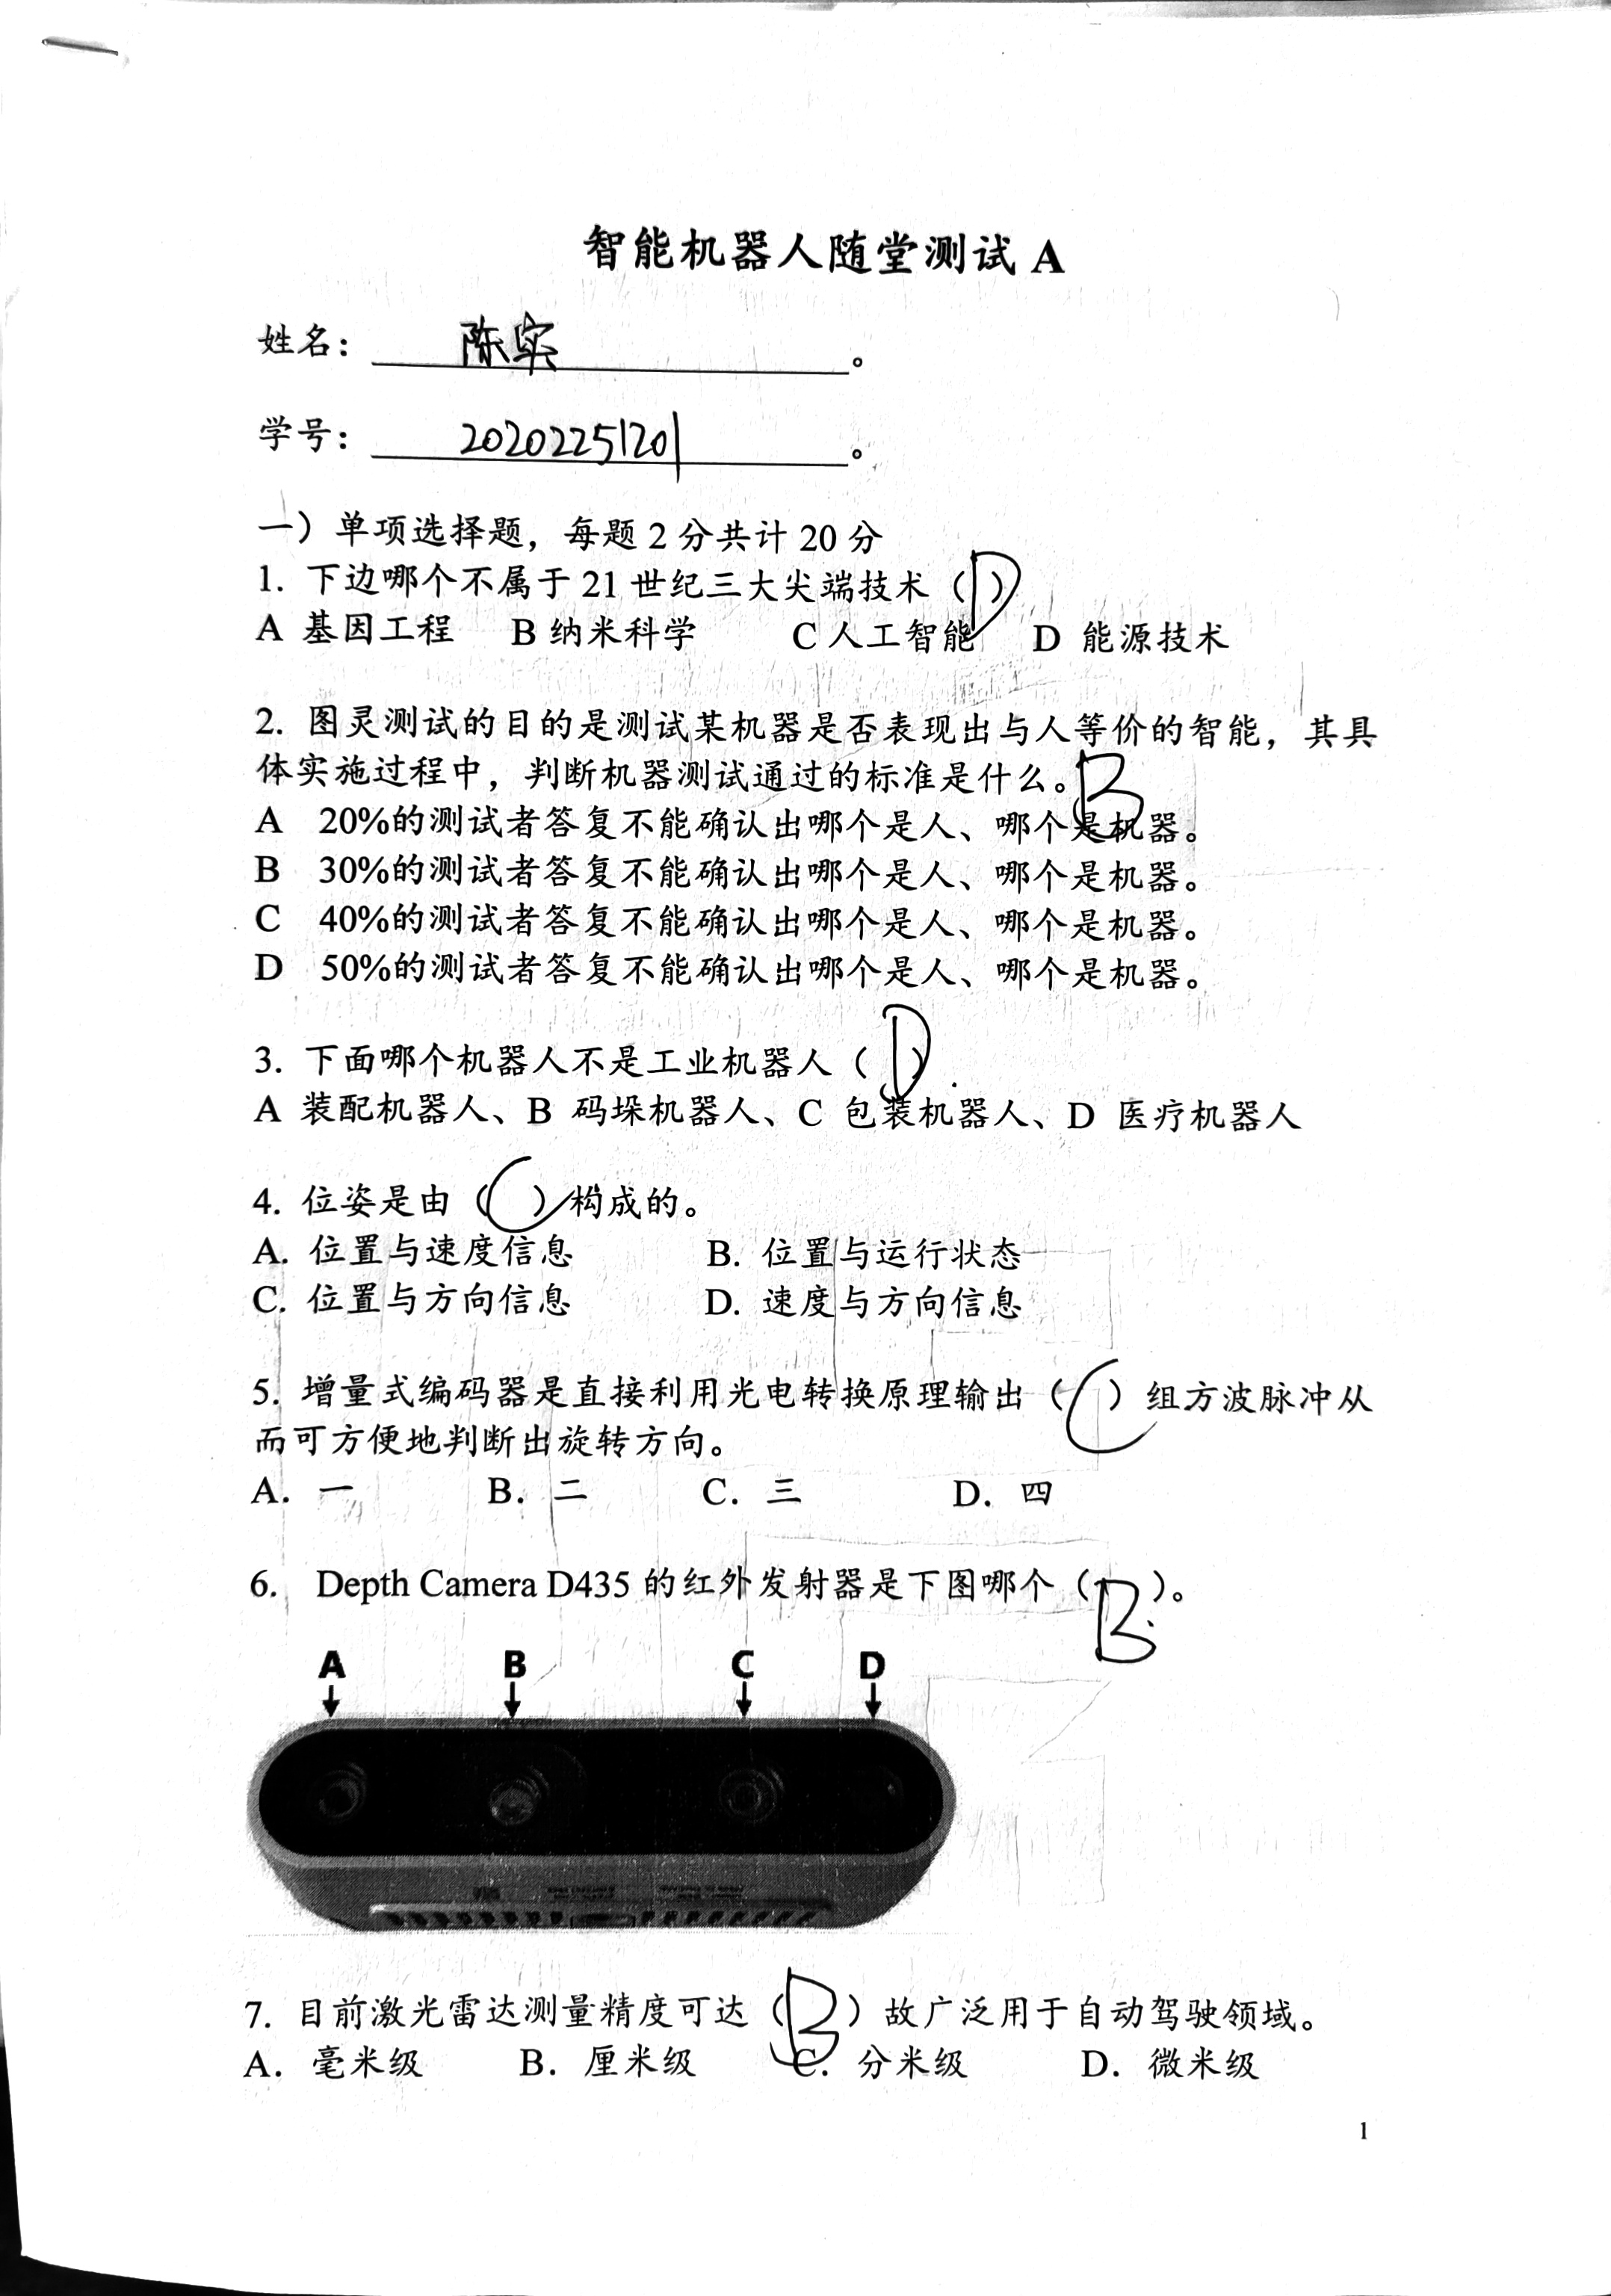 智能机器人随堂测试 A
姓名： 陈实 。
学号： 20202251201 。
一）单项选择题，每题 2 分共计 20 分
1. 下边哪个不属于 21 世纪三大尖端技术（D）
A 基因工程 B 纳米科学 C 人工智能 D 能源技术
2. 图灵测试的目的是测试某机器是否表现出与人等价的智能，其具
体实施过程中，判断机器测试通过的标准是什么。B
A 20%的测试者答复不能确认出哪个是人、哪个是机器。
B 30%的测试者答复不能确认出哪个是人、哪个是机器。
C 40%的测试者答复不能确认出哪个是人、哪个是机器。
D 50%的测试者答复不能确认出哪个是人、哪个是机器。
3. 下面哪个机器人不是工业机器人（D）
A 装配机器人、B 码垛机器人、C 包装机器人、D 医疗机器人
4. 位姿是由（C）构成的。
A. 位置与速度信息 B. 位置与运行状态
C. 位置与方向信息 D. 速度与方向信息
5. 增量式编码器是直接利用光电转换原理输出（C）组方波脉冲从
而可方便地判断出旋转方向。
A. 一 B. 二 C. 三 D. 四
6. Depth Camera D435 的红外发射器是下图哪个（B）。
A B C D
7. 目前激光雷达测量精度可达（B）故广泛用于自动驾驶领域。
A. 毫米级 B. 厘米级 C. 分米级 D. 微米级
1